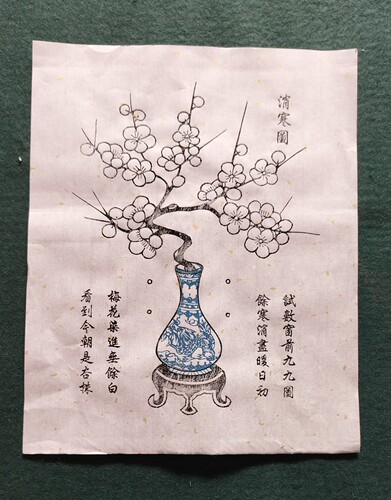 消寒圖
試數窗前九九圖
餘寒消盡暖日初
梅花染進無餘白
看到今朝是杏株